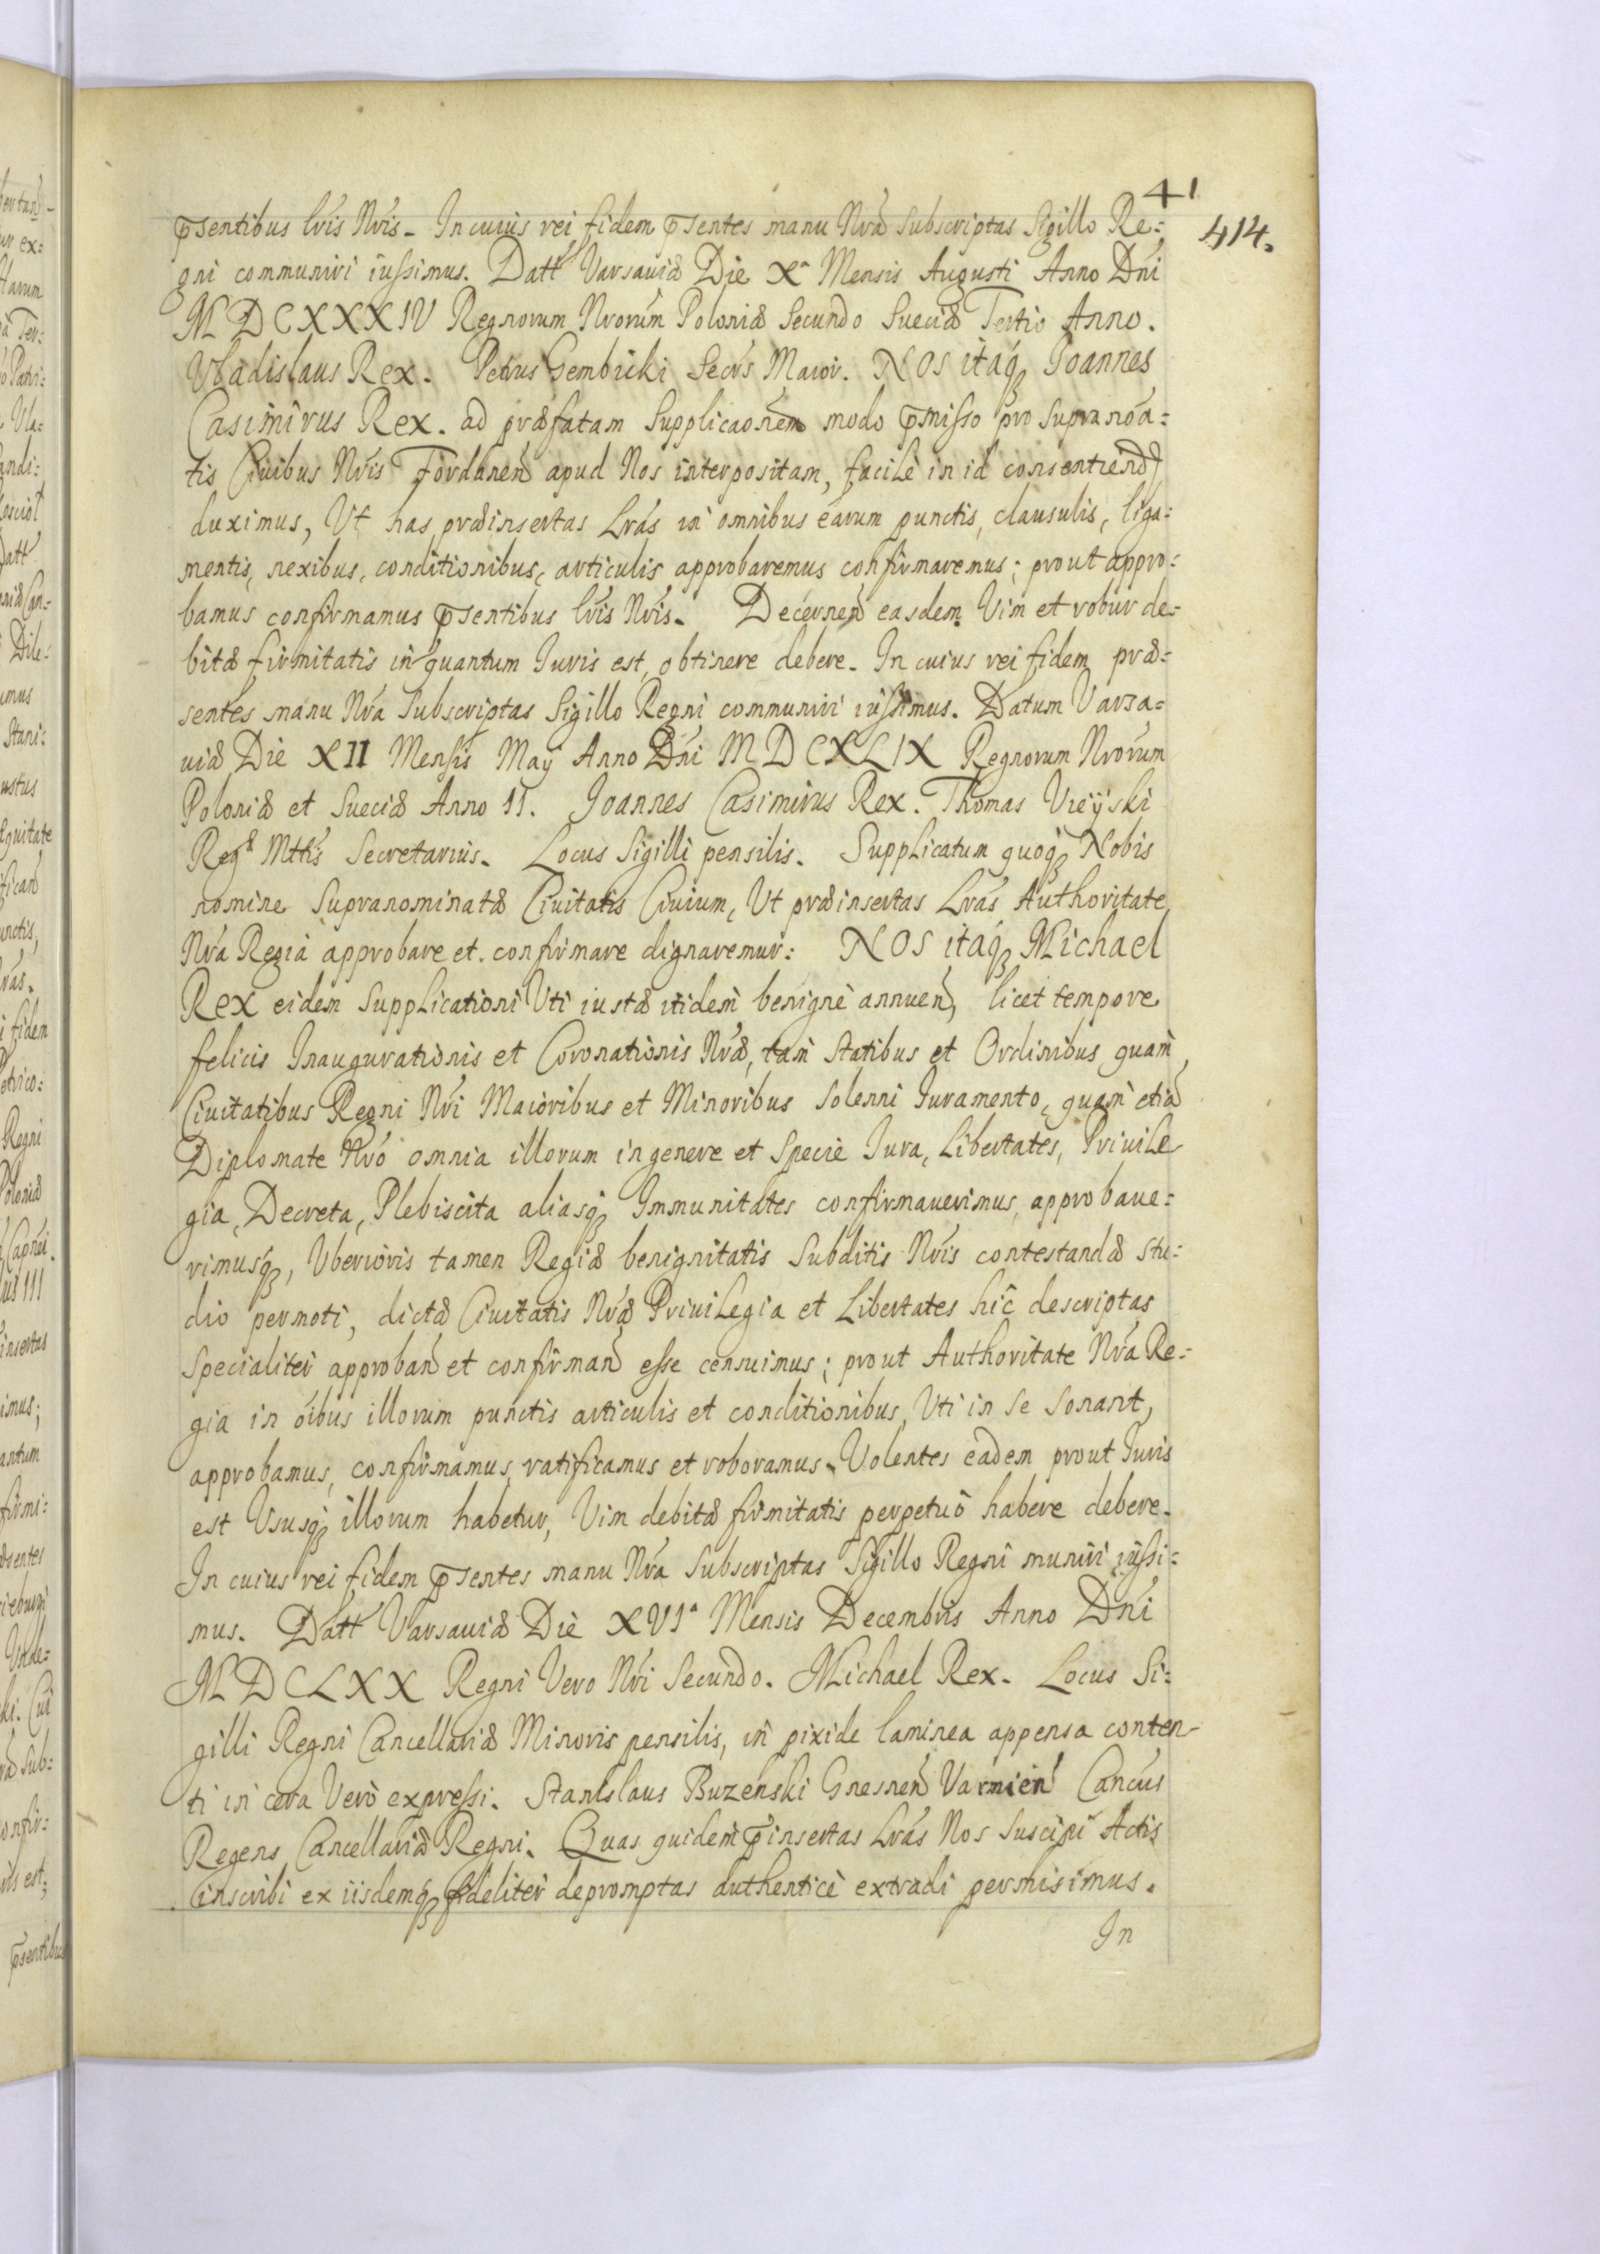 41
414.
p̄sentibus lr̃is Nr̃is. In cuius rei fidem p̄sentes manu Nr̃a Subscriptas Sigillo Re:
gni communiri iussimus. Datt Varsaviæ Die Xª Mensis Augusti Anno Dn̄i
MDCXXXIV Regnorum Nrorum Poloniæ Secundo Sueciæ Tertio Anno.
Vladislaus Rex. Petrus Gembicki Secr̃s Maior. NOS itaq3 Joannes
Casimirus Rex. ad præfatam Supplicaõnem modo p̄misso pro Supranoã:
tis Ciuibus Nr̃is Fordaneñ apud Nos interpositam, facilè in id consentiend
duximus, Vt has præinsertas Lrãs in omnibus earum punctis, clausulis, liga:
mentis, nexibus, conditionibus, articulis approbaremus confirmaremus; prout appro:
bamus confirmamus p̄sentibus lr̃is Nr̃is. Decerneñ easdem Vim et robur de:
bitæ firmitatis in quantum Iuris est, obtinere debere. In cuius rei fidem præ:
sentes manu Nr̃a Subscriptas Sigillo Regni communiri iussimus. Datum Varsa:
uiæ Die XII Mensis Maÿ Anno Dn̄i MDCXLIX Regnorum Nrorum
Poloniæ et Sueciæ Anno II. Joannes Casimirus Rex. Thomas Vieÿski
Regæ Mttis Secretarius. Locus Sigilli pensilis. Supplicatum quoq3 Nobis
nomine Supranominatæ Ciuitatis Ciuium, Vt præinsertas Lrãs Authoritate
Nr̃a Regia approbare et confirmare dignaremur: NOS itaq3 Michael
Rex eidem Supplicationi Vti iustæ itidem benigne annueñ, licet tempore
felicis Inaugurationis et Coronationis Nr̃æ, tam Statibus et Ordinibus quam
Ciuitatibus Regni Nr̃i Maioribus et Minoribus Solenni Iuramento, quam etiã
Diplomate Nr̃o omnia illorum in genere et Specie Iura, Libertates, Priuile
gia, Decreta, Plebiscita aliasq3 Immunitates confirmauerimus, approbaue:
rimusq3, Vberioris tamen Regiæ benignitatis Subditis Nr̃is contestandæ Stu:
dio permoti, dictæ Ciuitatis Nr̃æ Priuilegia et Libertates hîc descriptas
Specialiter approbañ et confirmañ esse censuimus; prout Authoritate Nr̃a Re:
gia in oĩbus illorum punctis articulis et conditionibus, Vti in Se Sonant,
approbamus, confirmamus, ratificamus et roboramus. Volentes eadem prout Iuris
est Vsusq3 illorum habetur, Vim debitæ firmitatis perpetuò habere debere.
In cuius rei fidem p̄sentes manu Nr̃a Subscriptas Sigillo Regni muniri iussi:
mus. Datt Varsaviæ Die XVIª Mensis Decembris Anno Dn̄i
MDCLXX Regni Vero Nr̃i Secundo. Michael Rex. Locus Si:
gilli Regni Cancellariæ Minoris pensilis, in pixide laminea appensa conten-
ti in cera Verò expressi. Stanislaus Buzenski Gnesneñ Varmieñ Cancũs
Regens Cancellariæ Regni. Quas quidem p̄insertas Lrãs Nos Suscipi Actis
inscribi ex iisdemq3 fideliter depromptas authenticè extradi permisimus.
In